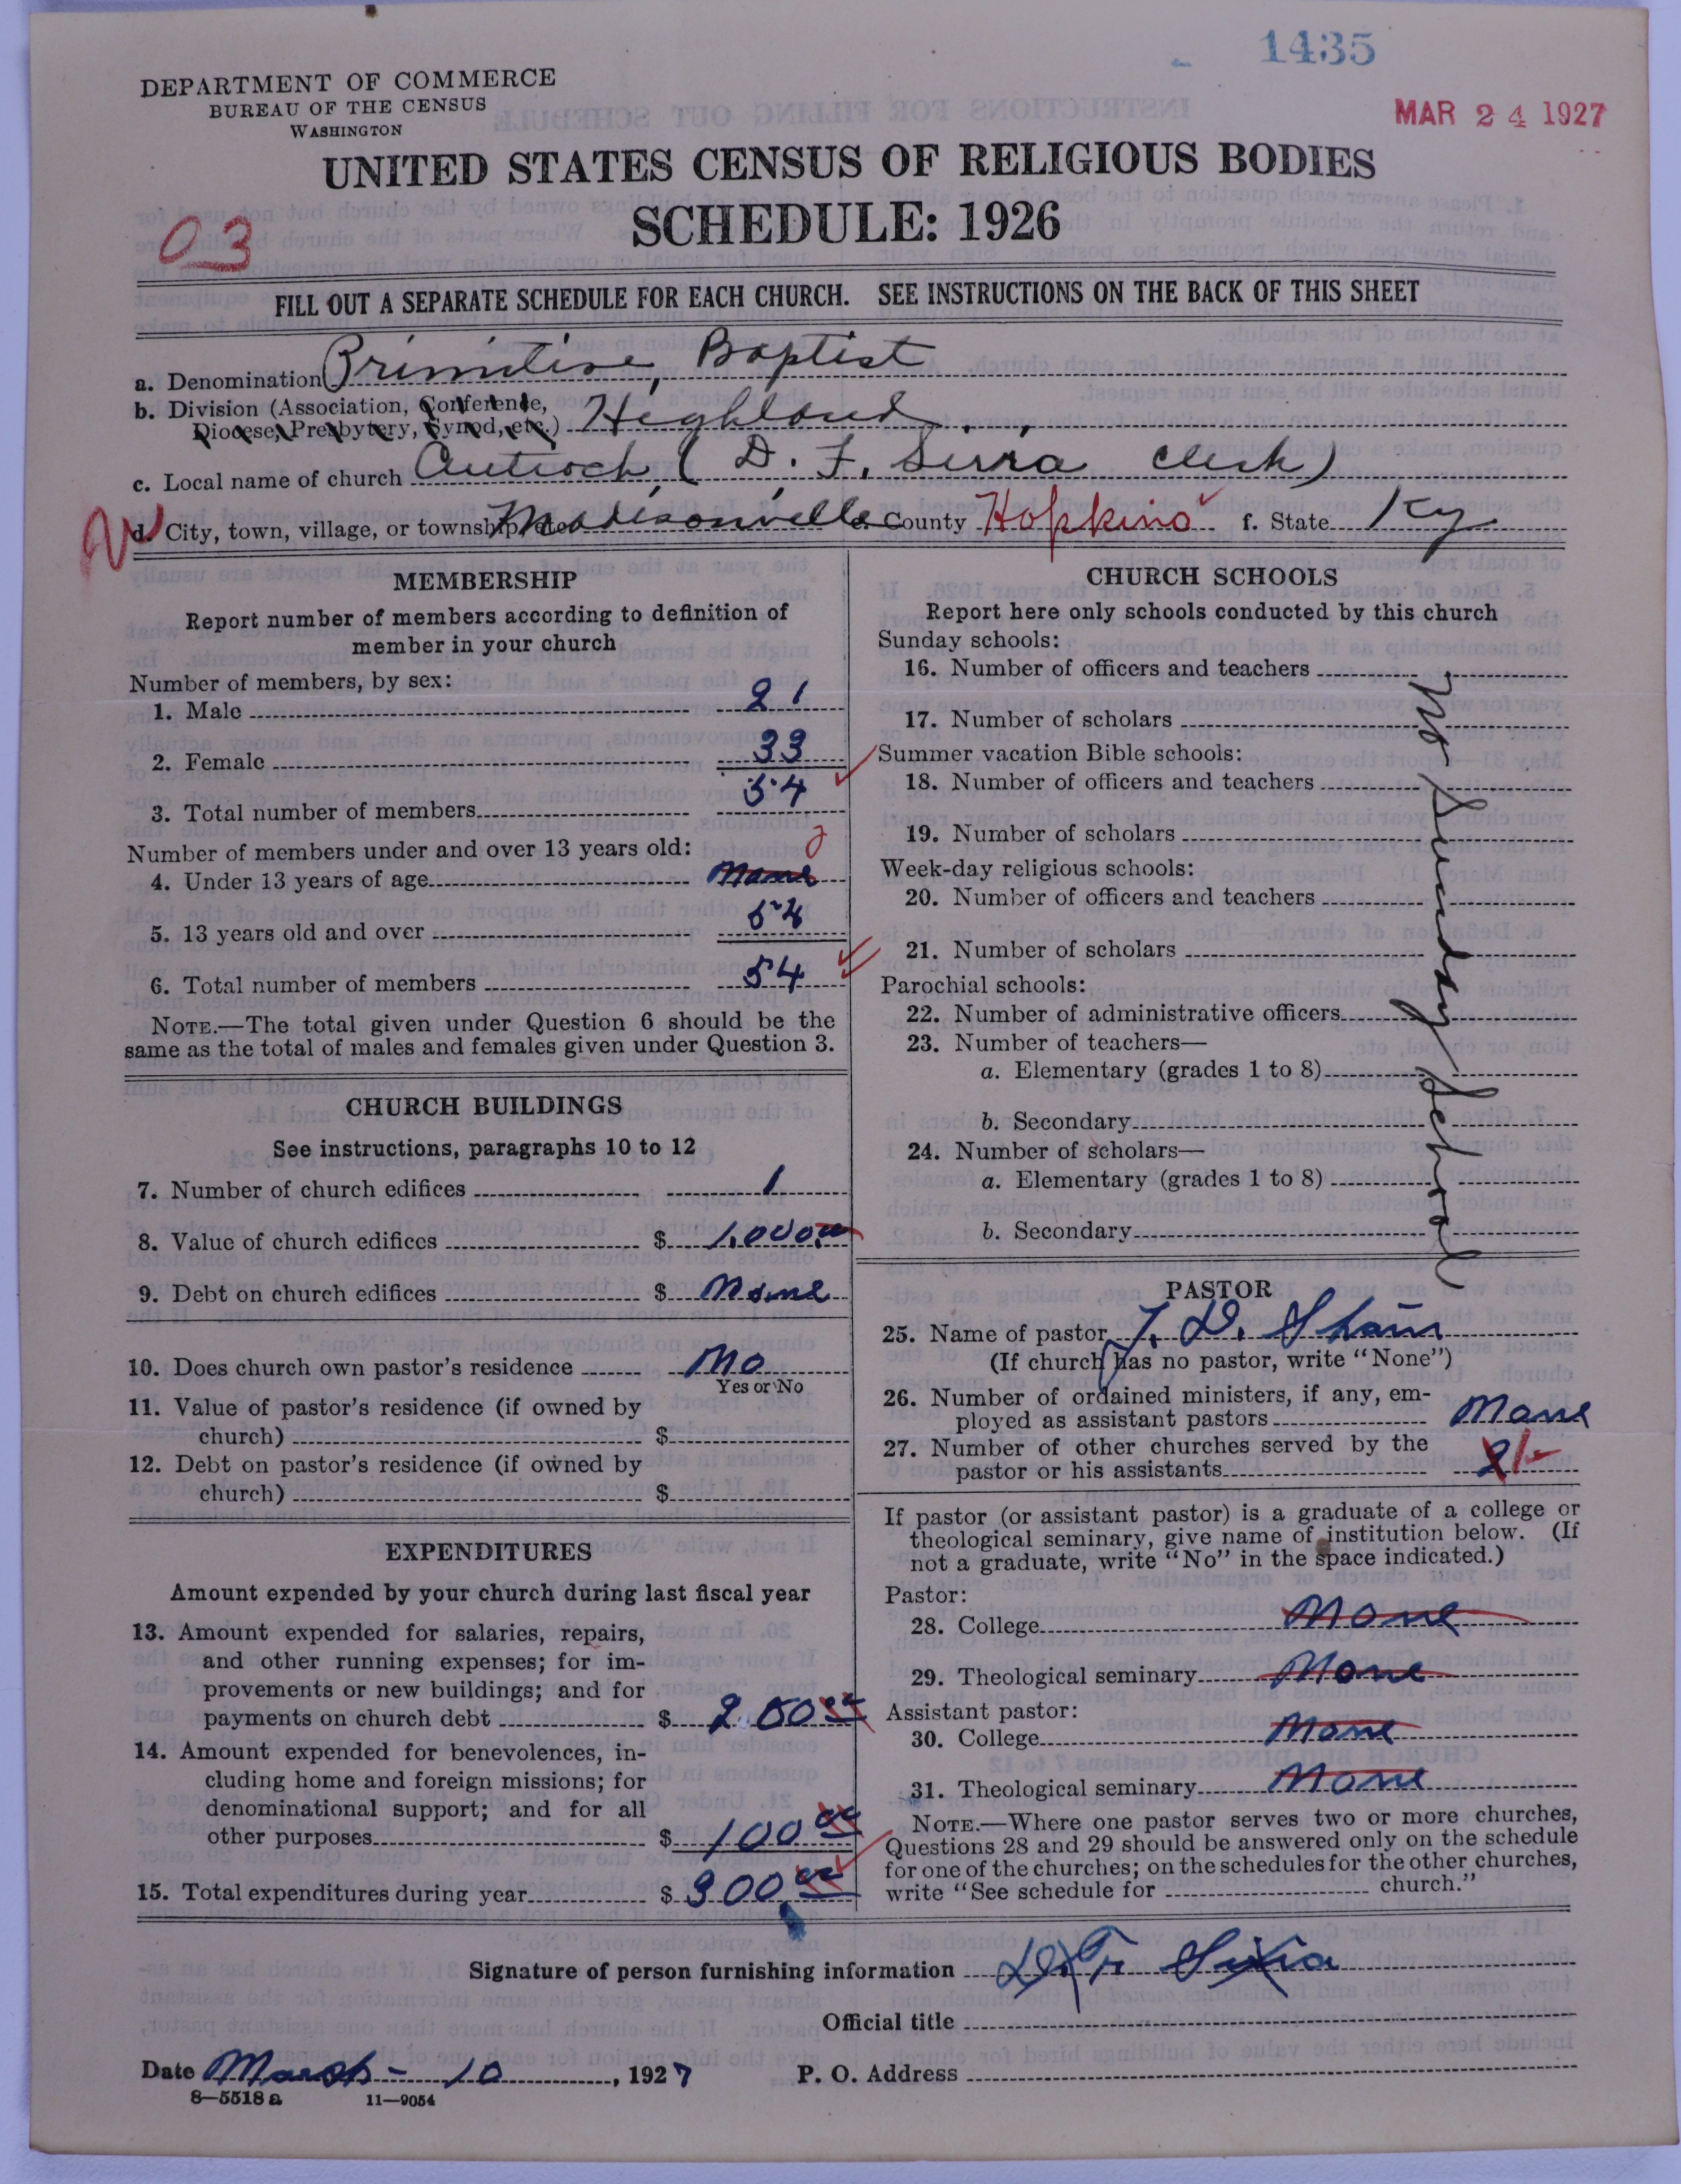 1435
DEPARTMENT OF COMMERCE
BUREAU OF THE CENSUS
WASHINGTON
MAR 24 1927
UNITED STATES CENSUS OF RELIGIOUS BODIES
SCHEDULE: 1926
03
FILL OUT A SEPARATE SCHEDULE FOR EACH CHURCH. SEE INSTRUCTIONS ON THE BACK OF THIS SHEET
a. Denomination Primitive, Baptist
b. Division (Association, Conference,
Diocese, Presbytery, Synod, etc.) Highland
c. Local name of church Antioch (D. F. Sirra clerk)
d. City, town, village, or township, etc. Madisonville e. County Hopkins f. State Ky
MEMBERSHIP
Report number of members according to definition of
member in your church
Number of members, by sex:
1. Male 21
2. Female 33
3. Total number of members 54
Number of members under and over 13 years old:
4. Under 13 years of age None
5. 13 years old and over 54
6. Total number of members 54
NOTE.—The total given under Question 6 should be the
same as the total of males and females given under Question 3.
CHURCH BUILDINGS
See instructions, paragraphs 10 to 12
7. Number of church edifices 1
8. Value of church edifices $ 1,000.00
9. Debt on church edifices $ None
10. Does church own pastor's residence No
Yes or No
11. Value of pastor's residence (if owned by
church) $
12. Debt on pastor's residence (if owned by
church) $
EXPENDITURES
Amount expended by your church during last fiscal year
13. Amount expended for salaries, repairs,
and other running expenses; for im-
provements or new buildings; and for
payments on church debt $ 200 00
14. Amount expended for benevolences, in-
cluding home and foreign missions; for
denominational support; and for all
other purposes $ 100 00
15. Total expenditures during year $ 300 00
CHURCH SCHOOLS
Report here only schools conducted by this church
Sunday schools:
16. Number of officers and teachers
17. Number of scholars
Summer vacation Bible schools:
18. Number of officers and teachers
19. Number of scholars
Week-day religious schools:
20. Number of officers and teachers
21. Number of scholars
Parochial schools:
22. Number of administrative officers
23. Number of teachers—
a. Elementary (grades 1 to 8)
b. Secondary
24. Number of scholars—
a. Elementary (grades 1 to 8)
b. Secondary
No Sunday School
PASTOR
25. Name of pastor J. D. Shain
(If church has no pastor, write "None")
26. Number of ordained ministers, if any, em-
ployed as assistant pastors None
27. Number of other churches served by the
pastor or his assistants 2
If pastor (or assistant pastor) is a graduate of a college or
theological seminary, give name of institution below. (If
not a graduate, write "No" in the space indicated.)
Pastor:
28. College None
29. Theological seminary None
Assistant pastor:
30. College None
31. Theological seminary None
NOTE.—Where one pastor serves two or more churches,
Questions 28 and 29 should be answered only on the schedule
for one of the churches; on the schedules for the other churches,
write "See schedule for church."
Signature of person furnishing information D. F. Sirra
Official title
Date March - 10, 1927 P. O. Address
8—5518 a 11—9054